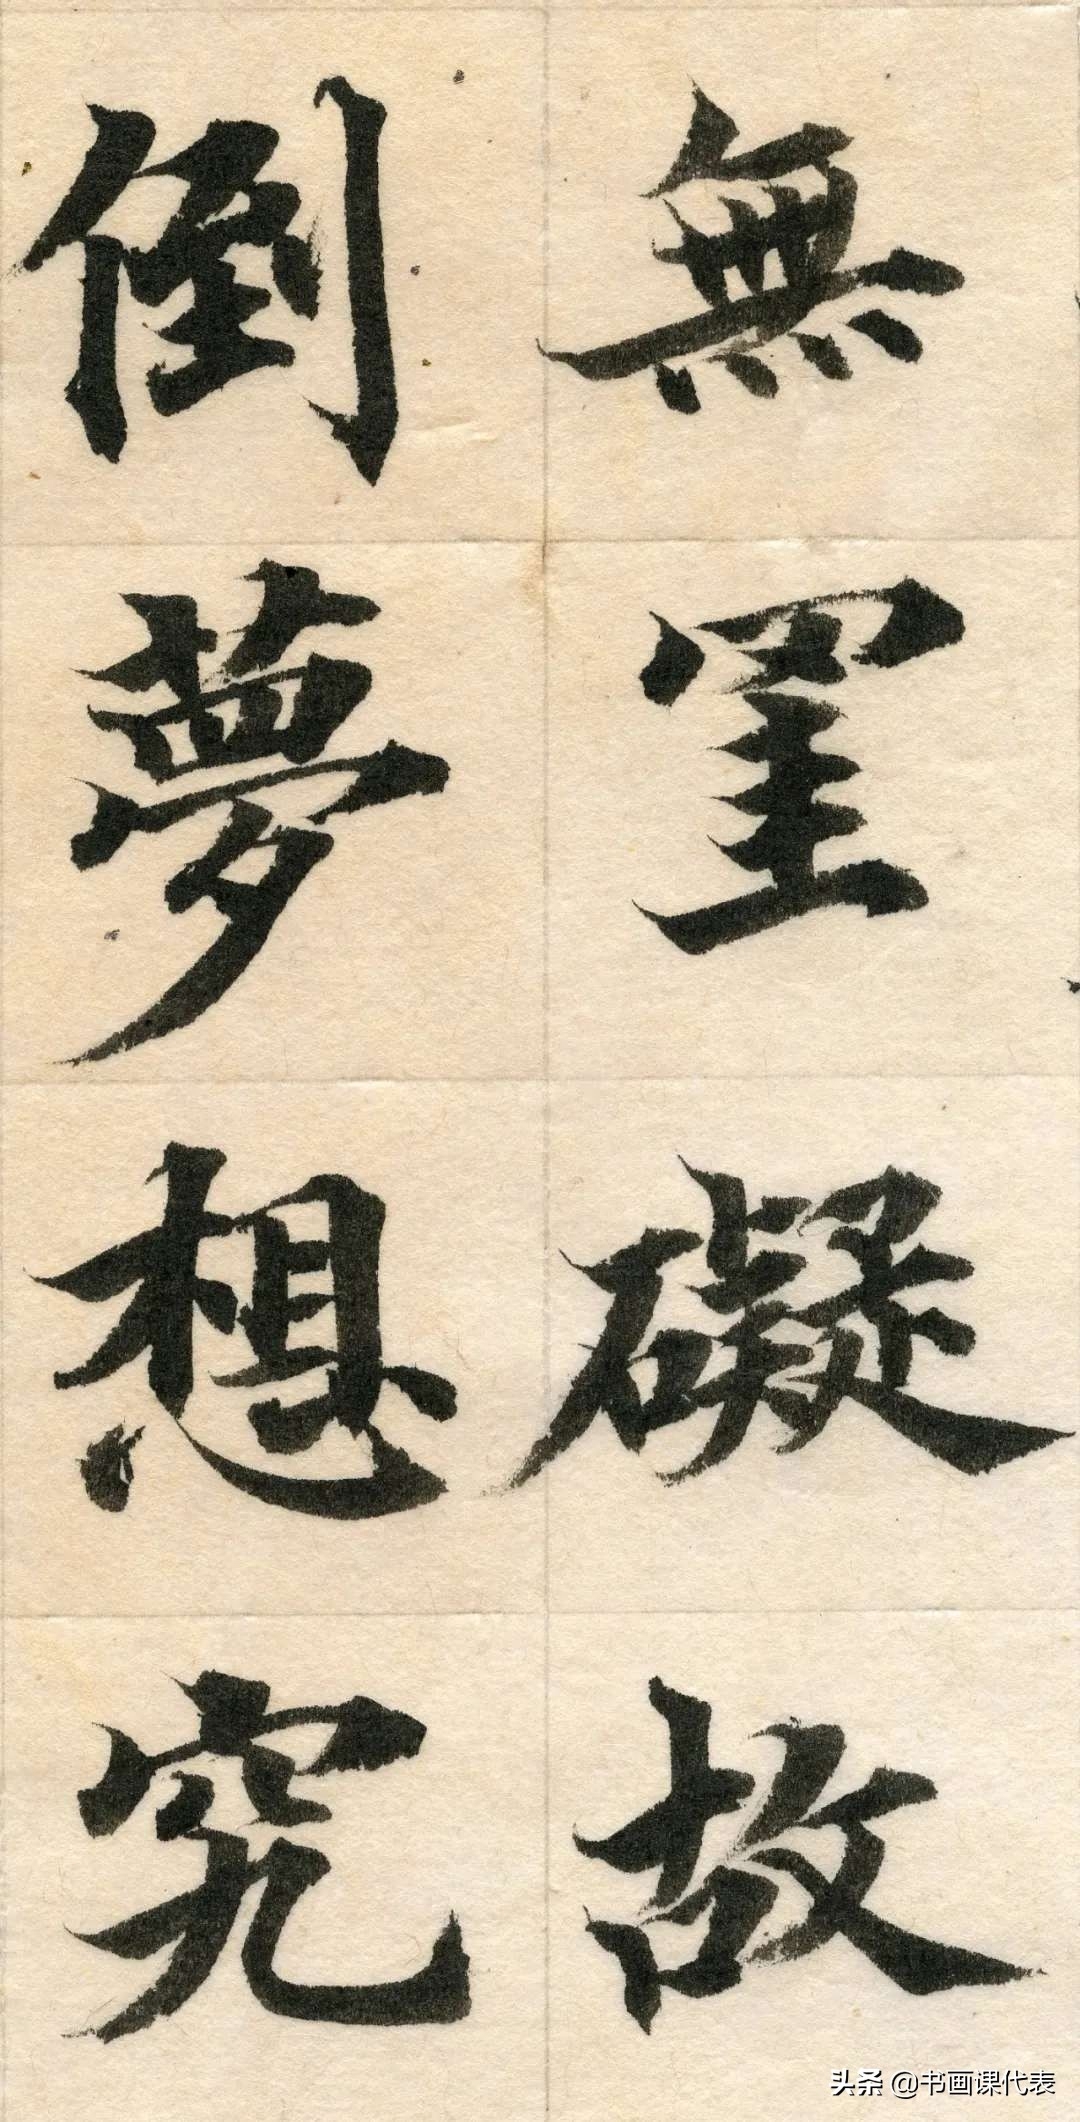 無罣礙故
倒夢想究
头条 @书画课代表